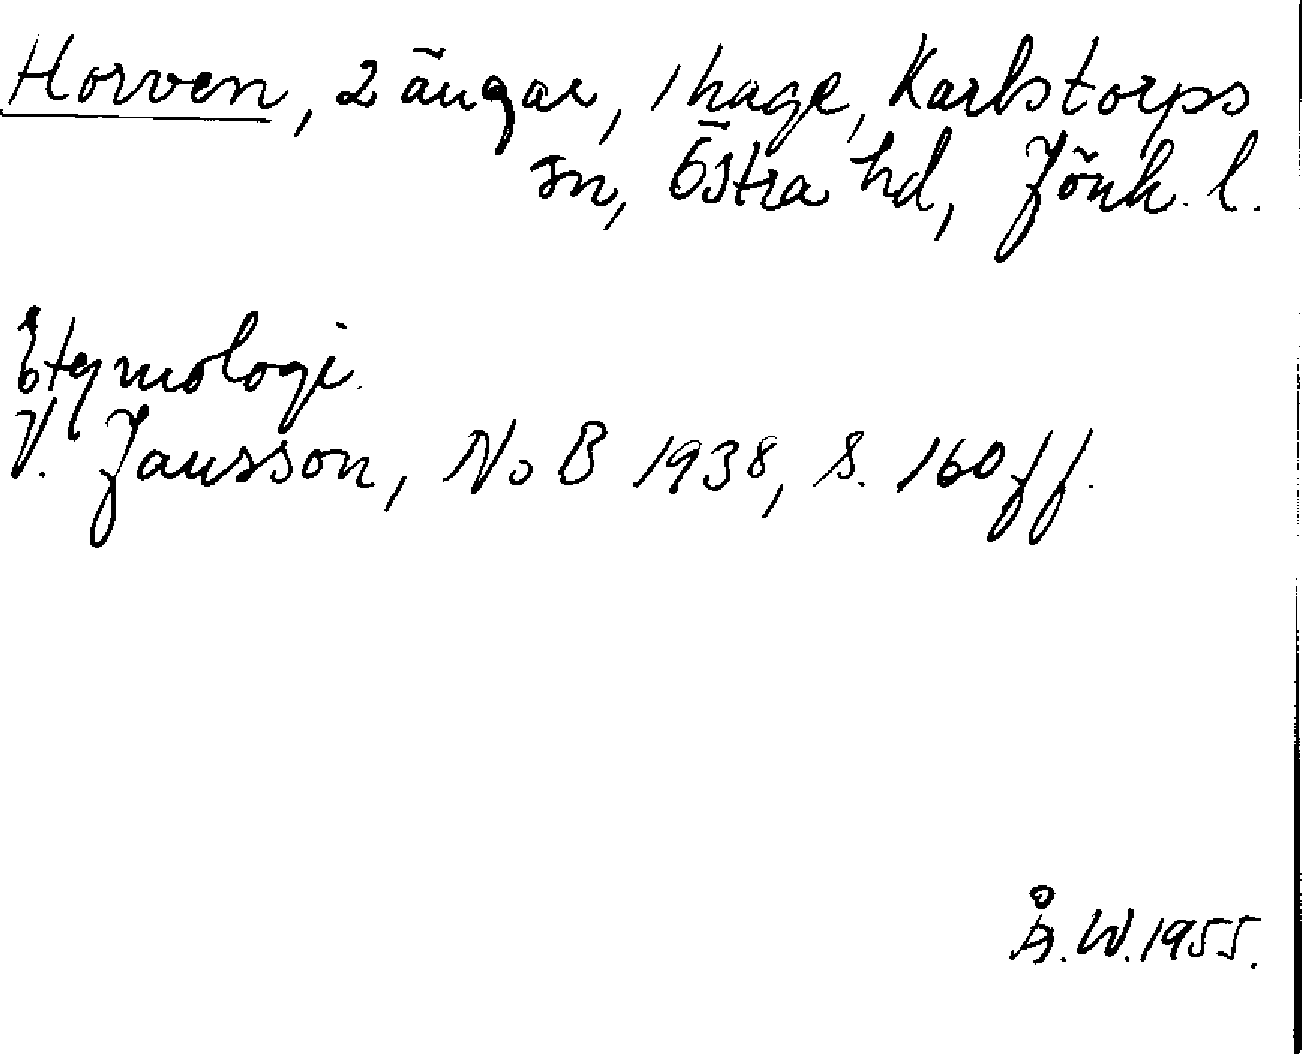 Horven, 2 ängar, 1 hage, Karlstorps
sn, Östra hd, Jönk. l.
Etymologi.
V. Jansson, NoB 1938, s. 160 ff.
Å. W. 1955.